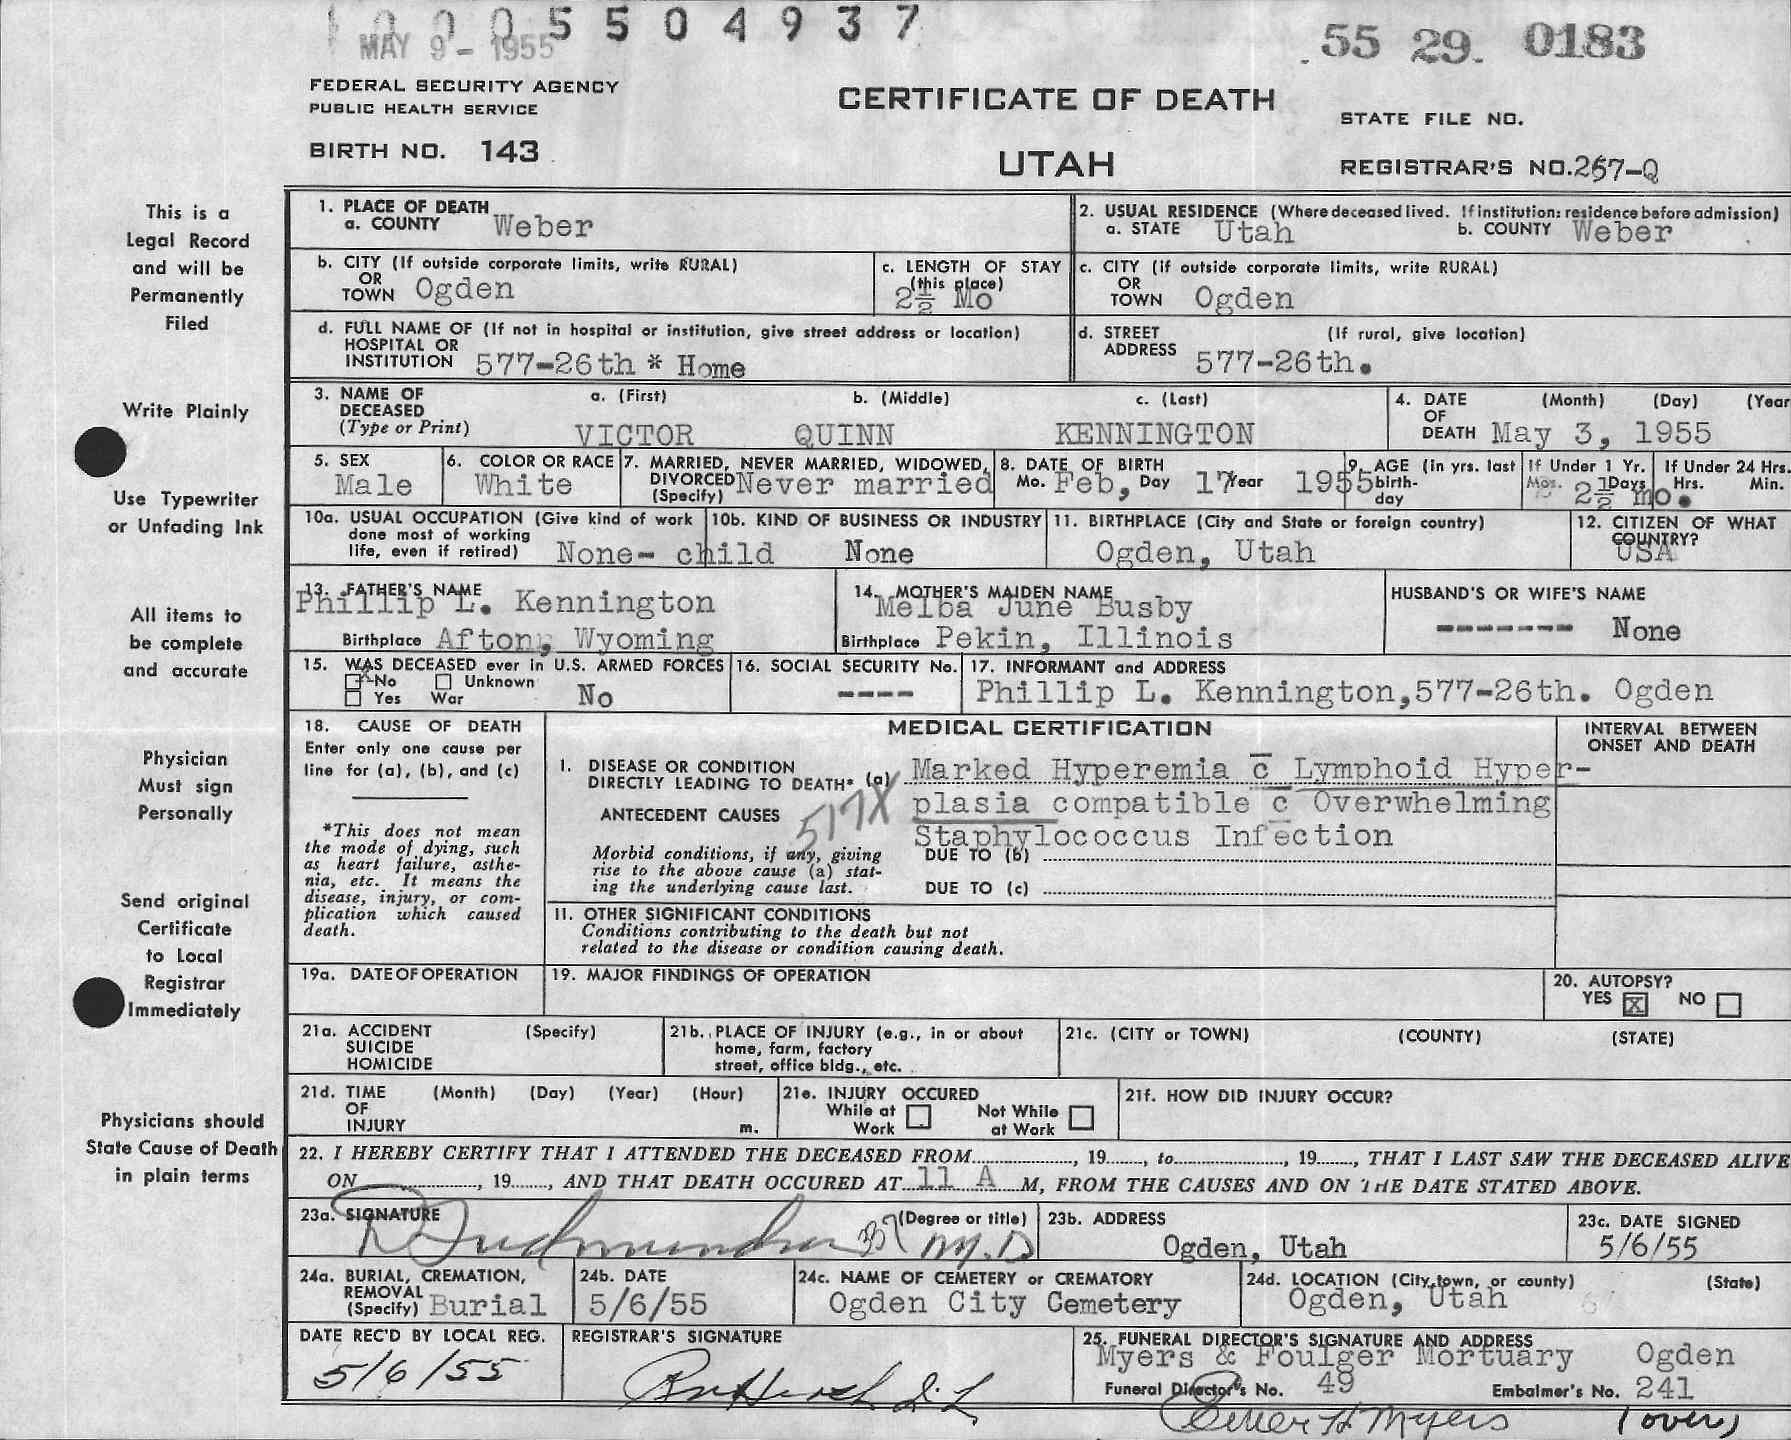 1 0 0 0 5 5 0 4 9 3 7
MAY 9 - 1955
55 29. 0183
FEDERAL SECURITY AGENCY
PUBLIC HEALTH SERVICE
BIRTH NO. 143
CERTIFICATE OF DEATH
UTAH
STATE FILE NO.
REGISTRAR'S NO. 267-Q
This is a
Legal Record
and will be
Permanently
Filed
Write Plainly
Use Typewriter
or Unfading Ink
All items to
be complete
and accurate
Physician
Must sign
Personally
Send original
Certificate
to Local
Registrar
Immediately
Physicians should
State Cause of Death
in plain terms
1. PLACE OF DEATH
a. COUNTY Weber
2. USUAL RESIDENCE (Where deceased lived. If institution: residence before admission)
a. STATE Utah b. COUNTY Weber
b. CITY (If outside corporate limits, write RURAL)
OR
TOWN Ogden
c. LENGTH OF STAY
(this place)
2½ Mo
c. CITY (if outside corporate limits, write RURAL)
OR
TOWN Ogden
d. FULL NAME OF (If not in hospital or institution, give street address or location)
HOSPITAL OR
INSTITUTION 577-26th * Home
d. STREET (If rural, give location)
ADDRESS 577-26th.
3. NAME OF DECEASED (Type or Print)
a. (First) b. (Middle) c. (Last)
VICTOR QUINN KENNINGTON
4. DATE OF DEATH (Month) (Day) (Year
May 3, 1955
5. SEX
Male
6. COLOR OR RACE
White
7. MARRIED, NEVER MARRIED, WIDOWED,
DIVORCED (Specify) Never married
8. DATE OF BIRTH
Mo. Feb, Day 17 Year 1955
9. AGE (in yrs. last birth-day
If Under 1 Yr. Mos. Days 2½ mo.
If Under 24 Hrs. Hrs. Min.
10a. USUAL OCCUPATION (Give kind of work
done most of working
life, even if retired) None- child
10b. KIND OF BUSINESS OR INDUSTRY
None
11. BIRTHPLACE (City and State or foreign country)
Ogden, Utah
12. CITIZEN OF WHAT
COUNTRY?
USA
13. FATHER'S NAME
Phillip L. Kennington
Birthplace Afton, Wyoming
14. MOTHER'S MAIDEN NAME
Melba June Busby
Birthplace Pekin, Illinois
HUSBAND'S OR WIFE'S NAME
------- None
15. WAS DECEASED ever in U.S. ARMED FORCES
X No Unknown
Yes War No
16. SOCIAL SECURITY No.
----
17. INFORMANT and ADDRESS
Phillip L. Kennington,577-26th. Ogden
18. CAUSE OF DEATH
Enter only one cause per
line for (a), (b), and (c)
*This does not mean
the mode of dying, such
as heart failure, asthe-
nia, etc. It means the
disease, injury, or com-
plication which caused
death.
MEDICAL CERTIFICATION
INTERVAL BETWEEN
ONSET AND DEATH
I. DISEASE OR CONDITION
DIRECTLY LEADING TO DEATH* (a) Marked Hyperemia c̄ Lymphoid Hyper-
plasia compatible c̄ Overwhelming
Staphylococcus Infection
517X
ANTECEDENT CAUSES
Morbid conditions, if any, giving
rise to the above cause (a) stat-
ing the underlying cause last.
DUE TO (b)
DUE TO (c)
II. OTHER SIGNIFICANT CONDITIONS
Conditions contributing to the death but not
related to the disease or condition causing death.
19a. DATE OF OPERATION
19. MAJOR FINDINGS OF OPERATION
20. AUTOPSY?
YES X NO
21a. ACCIDENT (Specify)
SUICIDE
HOMICIDE
21b. PLACE OF INJURY (e.g., in or about
home, farm, factory
street, office bldg., etc.
21c. (CITY or TOWN) (COUNTY) (STATE)
21d. TIME (Month) (Day) (Year) (Hour)
OF
INJURY m.
21e. INJURY OCCURED
While at Work
Not While at Work
21f. HOW DID INJURY OCCUR?
22. I HEREBY CERTIFY THAT I ATTENDED THE DECEASED FROM, 19, to, 19, THAT I LAST SAW THE DECEASED ALIVE
ON, 19, AND THAT DEATH OCCURED AT 11 A M, FROM THE CAUSES AND ON THE DATE STATED ABOVE.
23a. SIGNATURE (Degree or title)
M.D
23b. ADDRESS
Ogden, Utah
23c. DATE SIGNED
5/6/55
24a. BURIAL, CREMATION,
REMOVAL
(Specify) Burial
24b. DATE
5/6/55
24c. NAME OF CEMETERY or CREMATORY
Ogden City Cemetery
24d. LOCATION (City, town, or county) (State)
Ogden, Utah
DATE REC'D BY LOCAL REG.
5/6/55
REGISTRAR'S SIGNATURE
25. FUNERAL DIRECTOR'S SIGNATURE AND ADDRESS
Myers & Foulger Mortuary Ogden
Funeral Director's No. 49 Embalmer's No. 241
Myers (over)